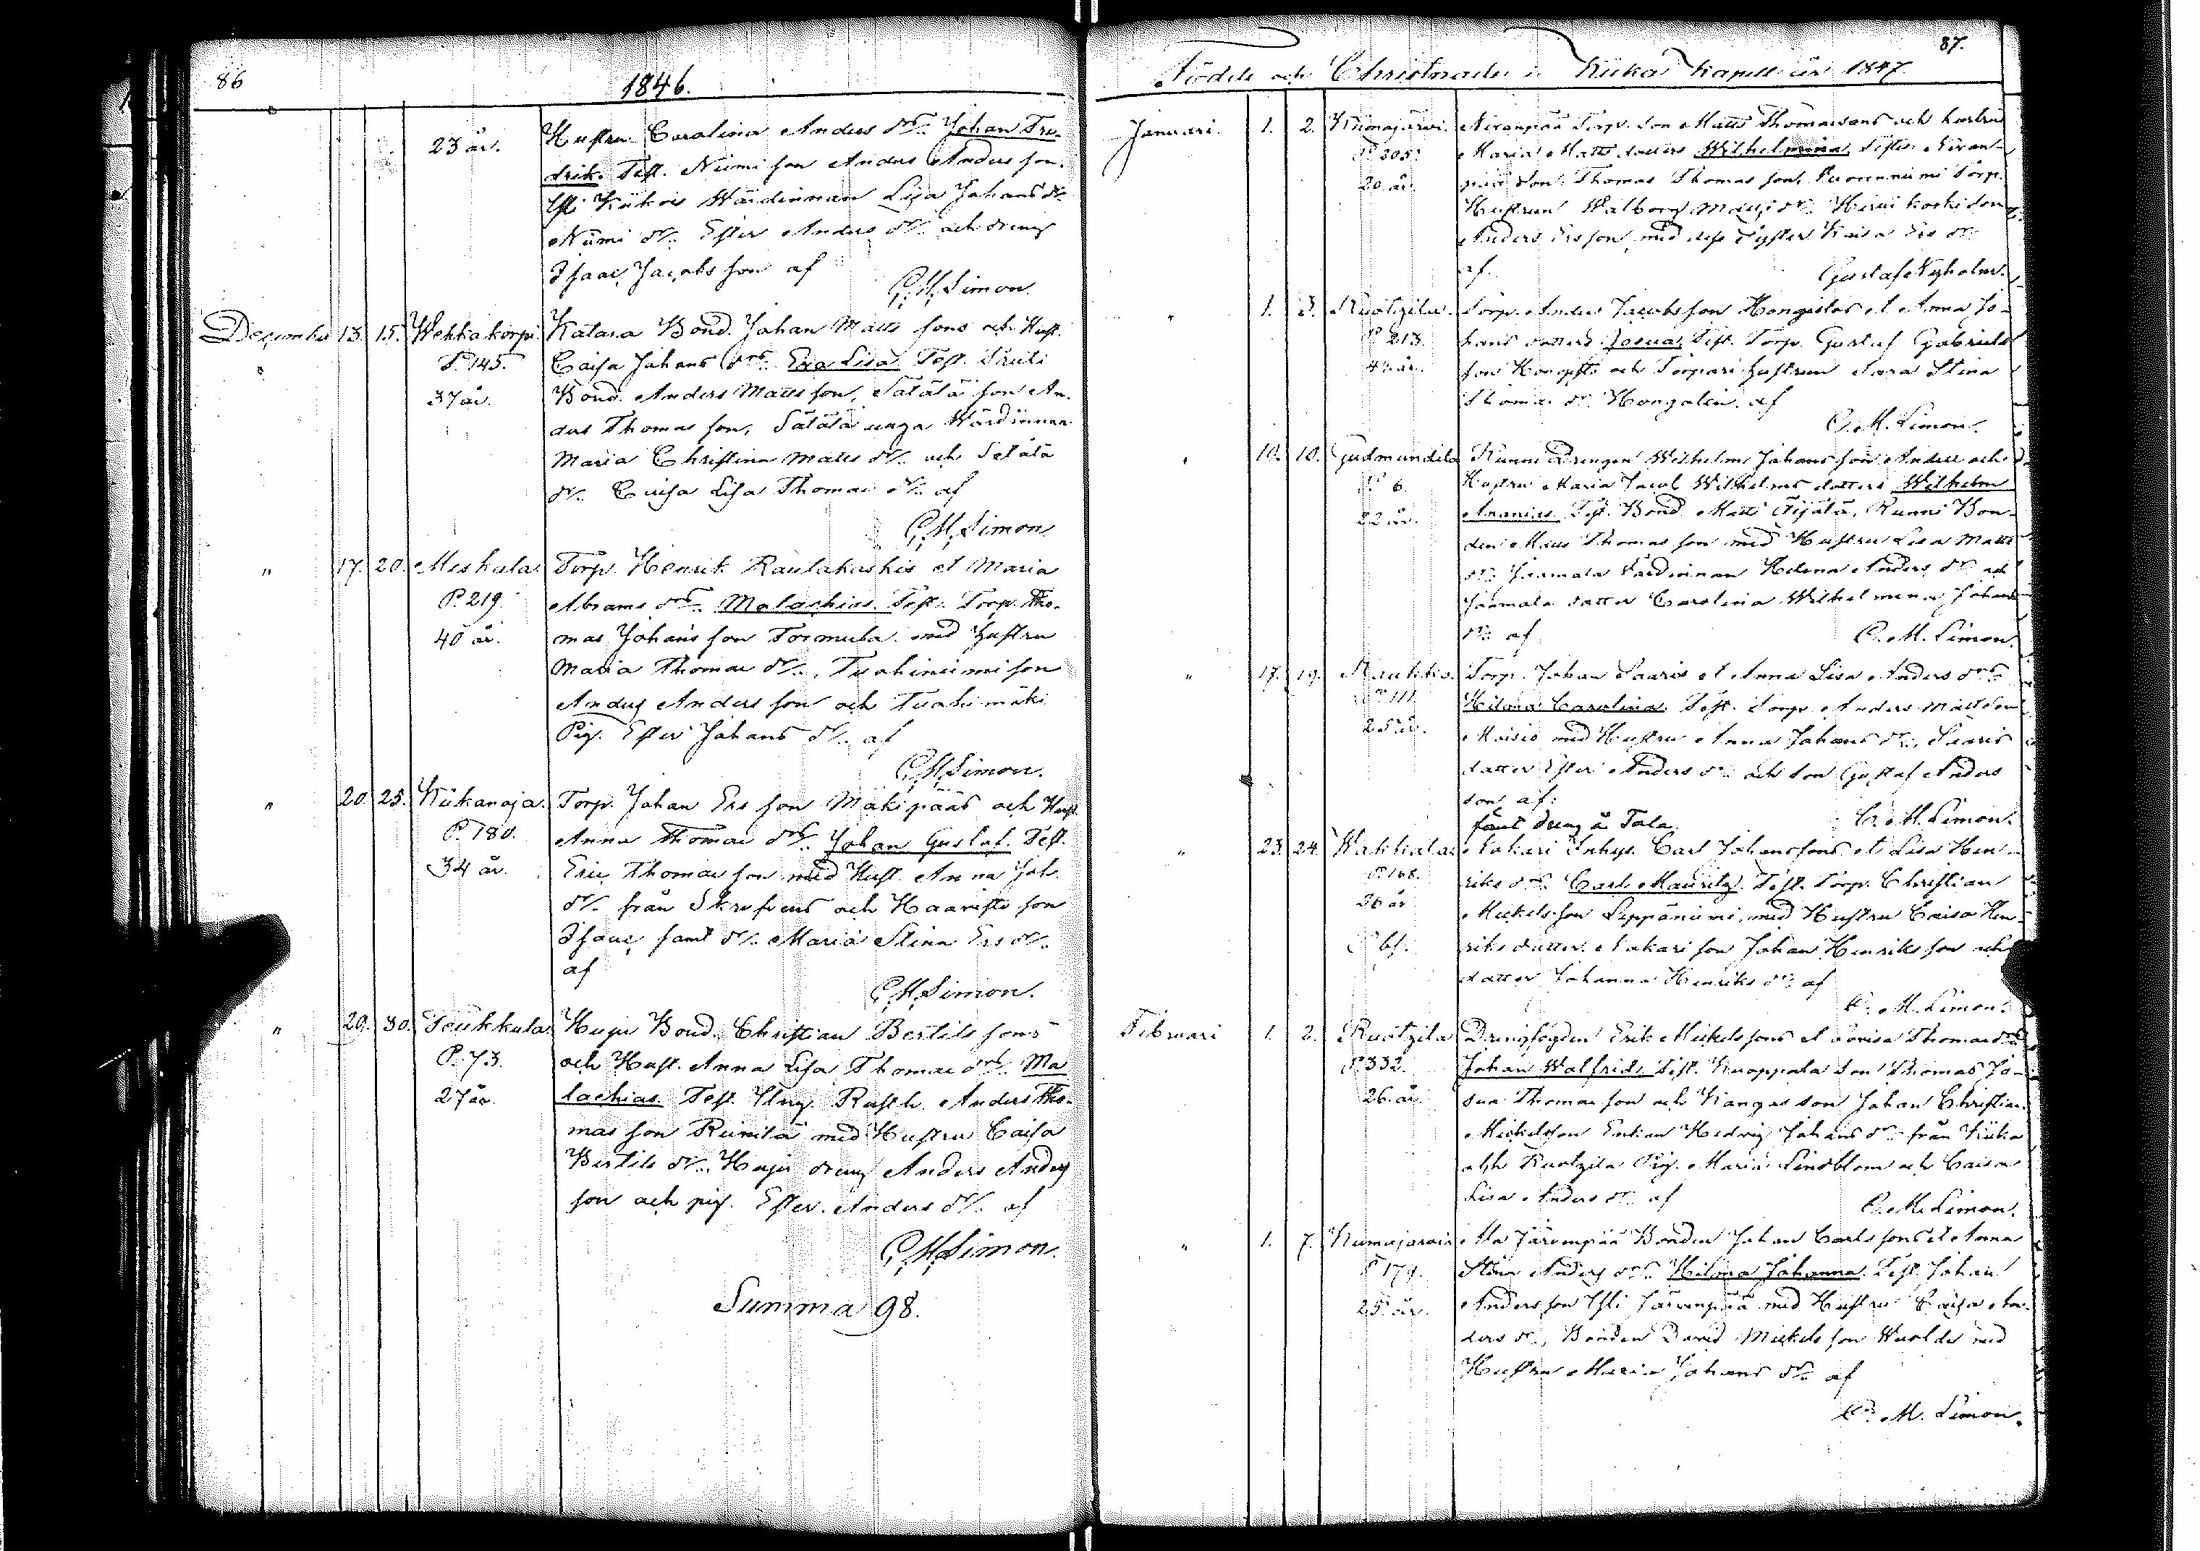 86
1846.
23 år.
Hustru Carolina Anders dr. Johan Fre-
drik. Test. Niemi son Anders Anders son.
Isaac Jacobs son af
C. M. Simon.
December 13. 15. Wehkakorpi
P. 145.
37 år.
Katara Bond. Johan Matts sons och Hust.
Caisa Johans drs. Eva Lisa. Test.
Bond. Anders Matts son, Sätälä son An-
ders Thomas son, Sätälä unga Wärdinnan
Maria Christina Matts dr. och Setälä
dr. Caisa Lisa Thomae dr. af
C. M. Simon
" 17. 20. Meskala
P. 219.
40 år.
Torp. Henrik Raulakoskis et Maria
Abrams drs. Malachias. Test. Torp. Tho-
mas Johans son Tormula med Hustru
Maria Thomae dr., son
Anders Anders son och
Pig. Ester Johans dr. af
C. M. Simon.
" 20. 25. Kiikanoja.
P. 180.
34 år.
Torp. Johan Ers son Mäkipääs och Hust.
Anna Thomae drs. Johan Gustaf. Test.
Eric Thomae son med Hust. Anna Joh.
dr. från och Haaristo son
Isaac samt dr. Maria Stina Ers dr.
af
C. M. Simon.
" 29. 30. Leukkula
P. 73.
27 år.
Huju Bond. Christian Bertils sons
och Hust. Anna Lisa Thomae drs. Ma
lachias. Test. Anders Tho-
mas son med Hustru Caisa
Bertils dr. Huju dreng Anders Anders
son och pig. Ester Anders dr. af
C. M. Simon.
Summa 98.
87.
Födde och Christnade i Kiika Kapell år 1847
Januari. 1. 2. Kiimajärvi.
P. 205.
20 år.
Nivanpää Torp. son Matts Thomaesons och hustru
Maria Matts dotters Wilhelmina. Testes Nivan-
pää son Thomas Thomas son, Torp.
Hustrun Walborg Matts dr. Hirvikoski son
Anders Ersson med dess Syster Caisa Ers dr.
af. Gustaf Nyholm.
" 1. 3. Ruotzila.
P. 213.
Torp. Anders Jacobsson Hongistos et Anna Jo-
hans dotters Josua, Test. Torp. Gustaf Gabriels
son och Torpari hustrun Sara Stina
Thomae dr. af
C. M. Simon.
" 10. 10. Gudmundila
P. 6.
22 år.
Kunni Drengen Wilhelm Johans son och
Hustru Maria Jacob Wilhelms dotters Wilhelm
Ananias. Test. Bond Matts Äijälä, Kunni Bon-
den Matts Thomas son med Hustru Lisa Matts
dr. Jaamala Wärdinnan Helena Anders dr. och
Jaamala dotter Carolina Wilhelmina Johans
dr. af C. M. Simon.
" 17. 19.
P. 111.
25 år.
Torp. Johan Saaris et Anna Lisa Anders drs
Hilma Carolina. Test. Torp. Anders Mattsson
Maisio med Hustru Anna Johans dr. Saaris
dotter Ester Anders dr. och son Gustaf Anders
son, af:
samt dreng å Tala. C. M. Simon.
" 23. 24. Wakkala
P. 168.
26 år
Nakari Inhys. Carl Johanssons et Lisa Hen-
riks drs. Carl Mauritz. Test. Torp. Christian
Mickels son Leppäniemi med Hustru Caisa Hen-
riks dotter. Nakari son Johan Henriks son och
dotter Johanna Henriks dr. af
C. M. Simon.
Februari 1. 2. Ruotzila
P. 332.
26 år.
Drengfogden Erik Mickelssons et Lovisa Thomae drs
Johan Walfrid. Test. Knoppala son Thomas Jo-
sua Thomae son och Kangas son Johan Christian
Mickelsson Enkan Hedvig Johans dr. från Kiika
och Ruotzila Pig. Maria Lindblom och Caisa
Lisa Anders dr. af C. M. Simon.
" 1. 7. Kiimajärvi
P. 179.
25 år.
Ala Järvenpää Bonden Johan Carls sons et Anna
Stina Anders drs. Hilma Johanna. Test. Johan
Anders son Järvenpää med Hustru Caisa An-
ders dr., Bonden David Mickels son med
Hustru Maria Johans dr. af
C. M. Simon.